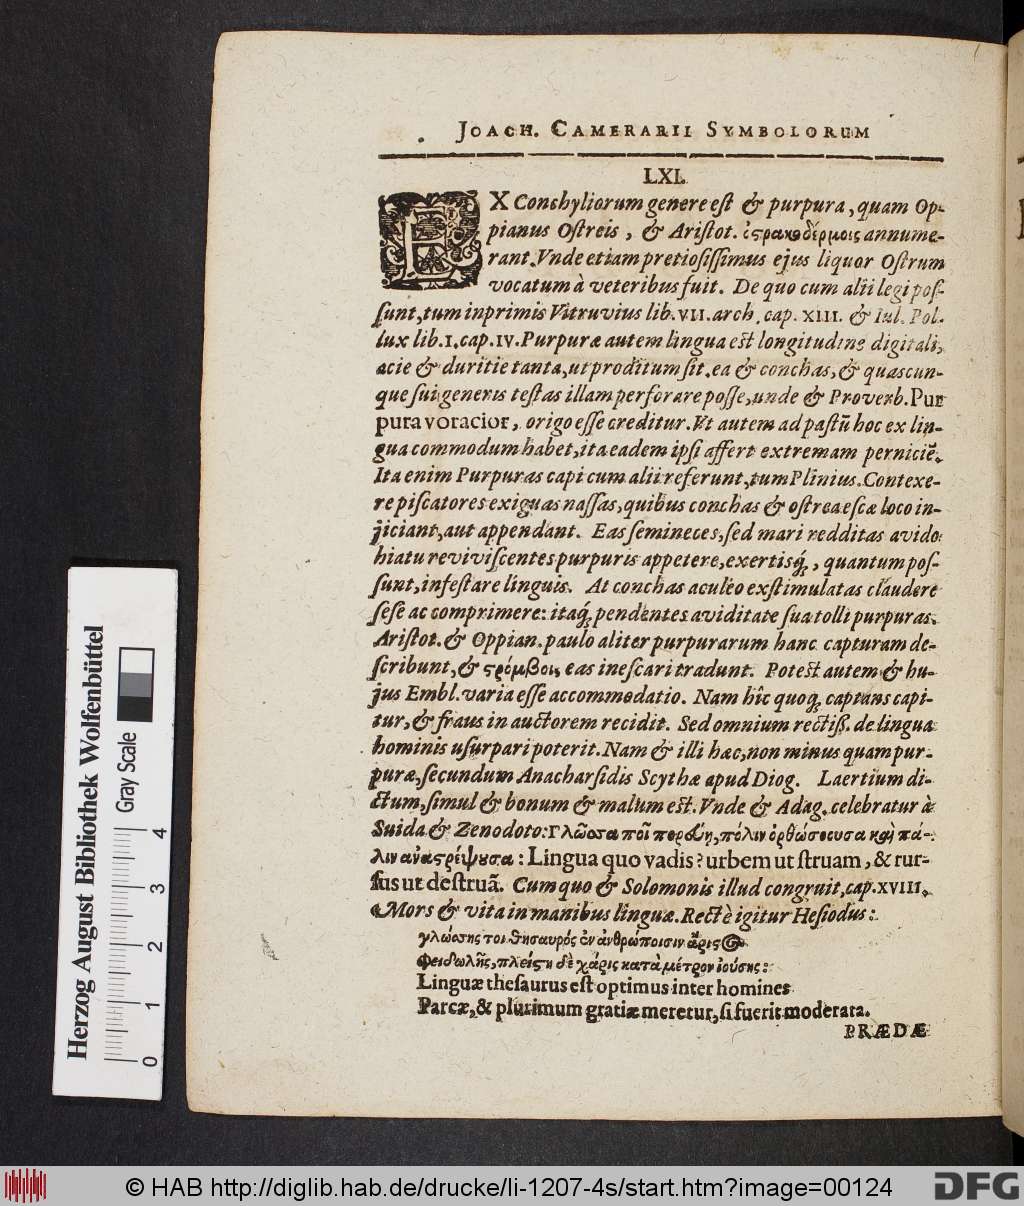 JOACH. CAMERARII SYMBOLORUM
LXI.
EX Conchyliorum genere est & purpura, quam Op-
pianus Ostreis, & Aristot. ὀστρακοδέρμοις annume-
rant. Vnde etiam pretiosissimus ejus liquor Ostrum
vocatum à veteribus fuit. De quo cum alii legi pos-
sunt, tum inprimis Vitruvius lib. VII. arch. cap. XIII. & Iul. Pol-
lux lib. I. cap. IV. Purpuræ autem lingua est longitudine digitali,
acie & duritie tanta, ut proditum sit, ea & conchas, & quascun-
que sui generis testas illam perforare posse, unde & Proverb. Pur
pura voracior, origo esse creditur. Vt autem ad pastũ hoc ex lin-
gua commodum habet, ita eadem ipsi affert extremam perniciẽ.
Ita enim Purpuras capi cum alii referunt, tum Plinius. Contexe-
re piscatores exiguas nassas, quibus conchas & ostrea escæ loco in-
jiciant, aut appendant. Eas semineces, sed mari redditas avido
hiatu reviviscentes purpuris appetere, exertisq́;, quantum pos-
sunt, infestare linguis. At conchas aculeo exstimulatas claudere
sese ac comprimere: itaq́; pendentes aviditate sua tolli purpuras.
Aristot. & Oppian. paulo aliter purpurarum hanc capturam de-
scribunt, & στρόμβοις eas inescari tradunt. Potest autem & hu-
jus Embl. varia esse accommodatio. Nam hîc quoq; captans capi-
tur, & fraus in auctorem recidit. Sed omnium rectiss. de lingua
hominis usurpari poterit. Nam & illi hæc, non minus quam pur-
puræ, secundum Anacharsidis Scythæ apud Diog. Laertium di-
ctum, simul & bonum & malum est. Vnde & Adag. celebratur à
Suida & Zenodoto: Γλῶσσα ποῖ πορεύῃ, πόλιν ὀρθώσουσα καὶ πά-
λιν ἀναστρέψουσα: Lingua quo vadis? urbem ut struam, & rur-
sus ut destruã. Cum quo & Solomonis illud congruit, cap. XVIII.
Mors & vita in manibus linguæ. Rectè igitur Hesiodus:
γλώσσης τοι θησαυρός ἐν ἀνθρώποισιν ἄριστος
Φειδωλῆς, πλείστη δὲ χάρις κατὰ μέτρον ἰούσης:
Linguæ thesaurus est optimus inter homines
Parcæ, & plurimum gratiæ meretur, si fuerit moderata.
PRÆDÆ
Herzog August Bibliothek Wolfenbüttel
Gray Scale
0 1 2 3 4
© HAB http://diglib.hab.de/drucke/li-1207-4s/start.htm?image=00124
DFG